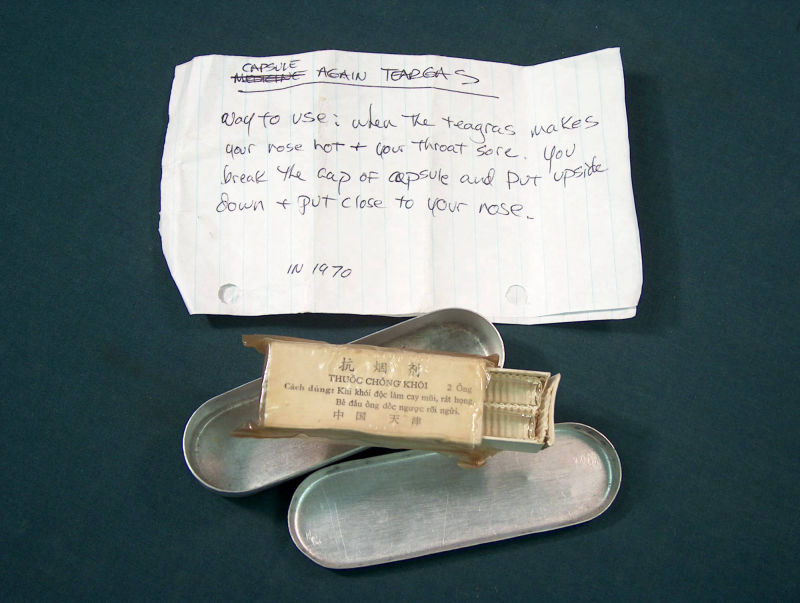 CAPSULE
MEDICINE AGAIN TEARGAS
Way to use: when the teagras makes
your nose hot + your throat sore. You
break the cap of capsule and put upside
down + put close to your nose.
IN 1970
抗 烟 剂
THUỐC CHỐNG KHÓI 2 Ống
Cách dùng: Khi khói độc làm cay mũi, rát họng,
Bẻ đầu ống dốc ngược rồi ngửi.
中 国 天 津